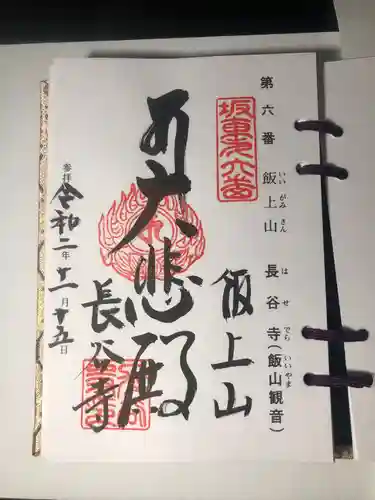 第六番 飯上山 長谷寺(飯山観音)
いい がみ さん は せ でら いいやま
坂東第六番
飯上山
大悲殿
長谷寺
参拝 令和二年十一月十五日